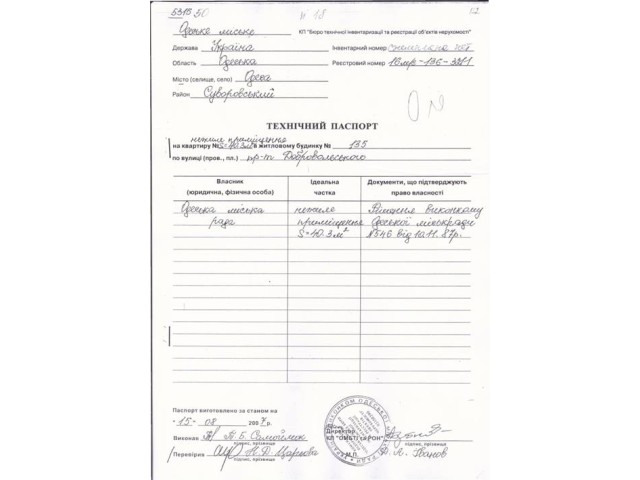 5315.50 п 18
Одеське міське КП "Бюро технічної інвентаризації та реєстрації об'єктів нерухомості"
Держава Україна Інвентарний номер
Область Одеська Реєстровний номер
Місто (селище, село) Одеса
Район Суворовський
ТЕХНІЧНИЙ ПАСПОРТ
нежиле приміщення
на квартиру № S=40.3м² в житловому будинку № 135
по вулиці (пров., пл.) пр-т Добровольського
Власник (юридична, фізична особа) Ідеальна частка Документи, що підтверджують право власності
Одеська міська нежиле Рішення виконкому
рада приміщення Одеської міськради
S=40.3м² №546 від 10.11.87р.
Паспорт виготовлено за станом на
"15" 08 2007р.
Директор
Виконав КП "ОМБТІ та РОН"
підпис, прізвище підпис, прізвище
Перевірив М.П. Іванов
підпис, прізвище